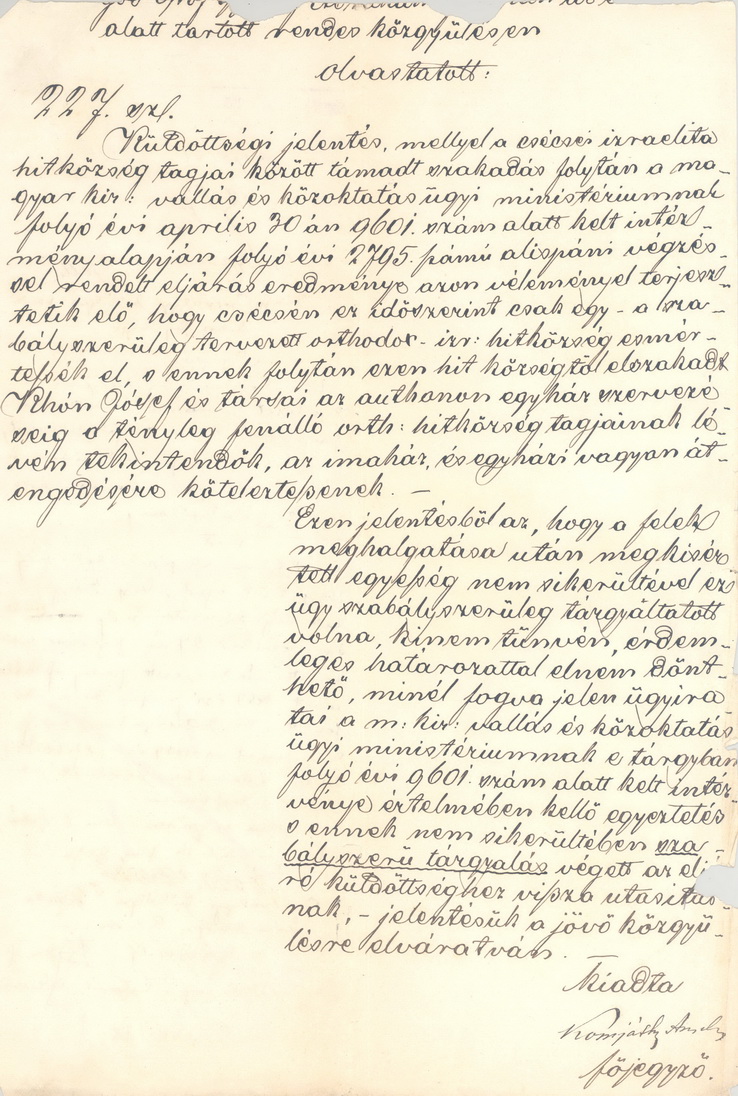 alatt tartott rendes közgyülésen
olvastatott:
227. szl.
Küldöttségi jelentés, mellyel a csécsei izraelita
hitközség tagjai között támadt szakadás folytán a ma-
gyar kir: vallás és közoktatás ügyi ministériumnak
folyó évi aprilis 30 án 9601. szám alatt kelt intéz-
mény alapján folyó évi 2795. számú alispáni végzés-
sel rendelt eljárás eredménye azon véleményel terjesz-
tetik elő, hogy csécsén ez időszerint csak egy - a sza-
bályszerüleg tervezett orthodox - izr: hitközség esmér-
tessék el, s ennek folytán ezen hit községtől elszakadt
Khón Jósef és társai az authonon egyház szervezé
seig a tényleg fenálló orth: hitközség tagjainak lé-
vén tekintendők, az imaház, és egyházi vagyon át-
engedésére köteleztessenek. —
Ezen jelentésből az, hogy a felek
meghalgatása után megkisér
tett egyesség nem sikerültével ezŝ
ügy szabályszerüleg tárgyaltatott
volna, kinem tünvén, érdem-
leges határozattal elnem dönt-
hető, minél fogva jelen ügyira
tai a m: kir: vallás és közoktatás
ügyi ministériumnak e tárgyban
folyó évi 9601. szám alatt kelt intéz-
vénye értelmében kellő egyeztetés
s ennek nem sikerültében sza-
bályszerü tárgyalás végett az eljá
ró küldöttséghez vissza utasitas-
nak, - jelentésük a jövő közgyü-
lésre elváratván. —
Kiadta
Komjáthy
főjegyző.